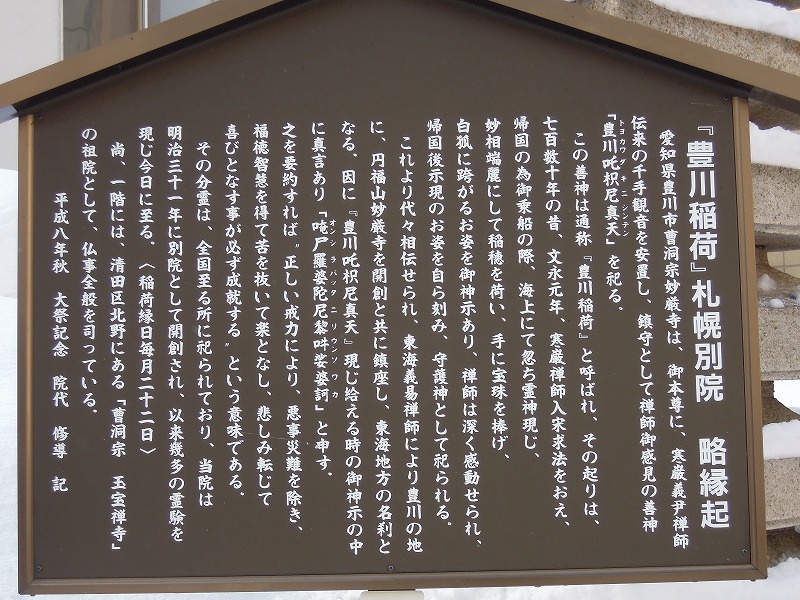 『豊川稲荷』札幌別院　略縁起
愛知県豊川市曹洞宗妙厳寺は、御本尊に、寒巌義尹禅師
伝来の千手観音を安置し、鎮守として禅師御感見の善神
「豊川吒枳尼真天」を祀る。
トヨカワダキニシンテン
この善神は通称『豊川稲荷』と呼ばれ、その起りは、
七百数十年の昔、文永元年、寒巌禅師入宋求法をおえ、
帰国の為御乗船の際、海上にて忽ち霊神現じ、
妙相端麗にして稲穂を荷い、手に宝珠を捧げ、
白狐に跨がるお姿を御神示あり、禅師は深く感動せられ、
帰国後示現のお姿を自ら刻み、守護神として祀られる。
これより代々相伝せられ、東海義易禅師により豊川の地
に、円福山妙厳寺を開創と共に鎮座し、東海地方の名刹と
なる。因に『豊川吒枳尼真天』現じ給える時の御神示の中
に真言あり「唵尸羅婆陀尼黎吽娑婆訶」と申す。
オンシラバッタニリウンソワカ
之を要約すれば〝正しい戒力により、悪事災難を除き、
福徳智慧を得て苦を抜いて楽となし、悲しみ転じて
喜びとなす事が必ず成就する〟という意味である。
その分霊は、全国至る所に祀られており、当院は
明治三十一年に別院として開創され、以来幾多の霊験を
現じ今日に至る。〈稲荷縁日毎月二十二日〉
尚、一階には、清田区北野にある「曹洞宗　玉宝禅寺」
の祖院として、仏事全般を司っている。
平成八年秋　大祭記念　院代　修導　記